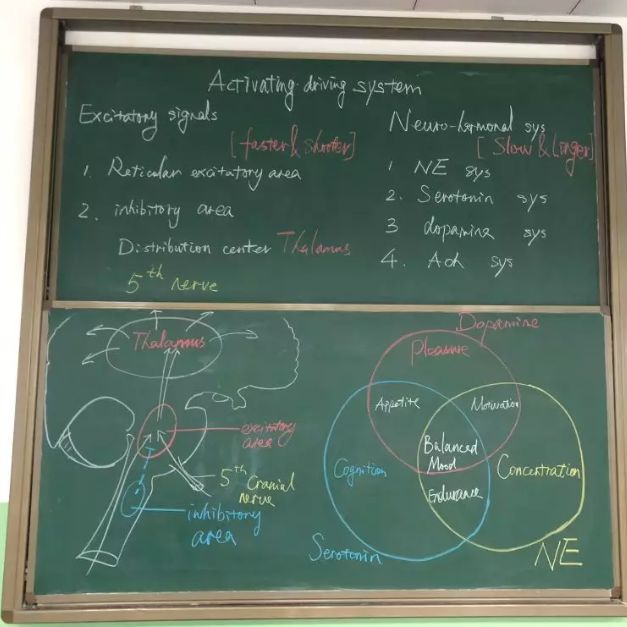 Activating driving system
Excitatory signals
[faster & shorter]
1. Reticular excitatory area
2. inhibitory area
Distribution center Thalamus
5th nerve
Neuro-hormonal sys
[Slow & Linger]
1 NE sys
2. Serotonin sys
3 dopamine sys
4. Ach sys
Thalamus
excitory
area
5th Cranial
nerve
inhibitory
area
Dopamine
Pleasure
Appetite
Motivation
Balanced
Mood
Cognition
Concentration
Endurance
Serotonin
NE